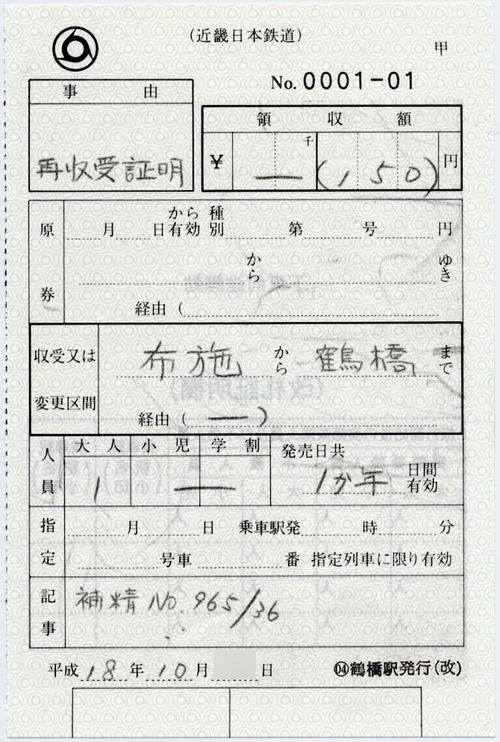 (近畿日本鉄道)
甲
No. 0001-01
事由
再収受証明
領収額
千
¥ ー(150)円
原券
月 日から有効 種別 第 号 円
から ゆき
経由(
収受又は変更区間
布施から鶴橋まで
経由(ー)
人員
大人 小児 学割
1 ー
発売日共 1か年 日間有効
指定
月 日 乗車駅発 時 分
号車 番 指定列車に限り有効
記事
補精No.965/36
平成18年10月 日
⑭鶴橋駅発行(改)